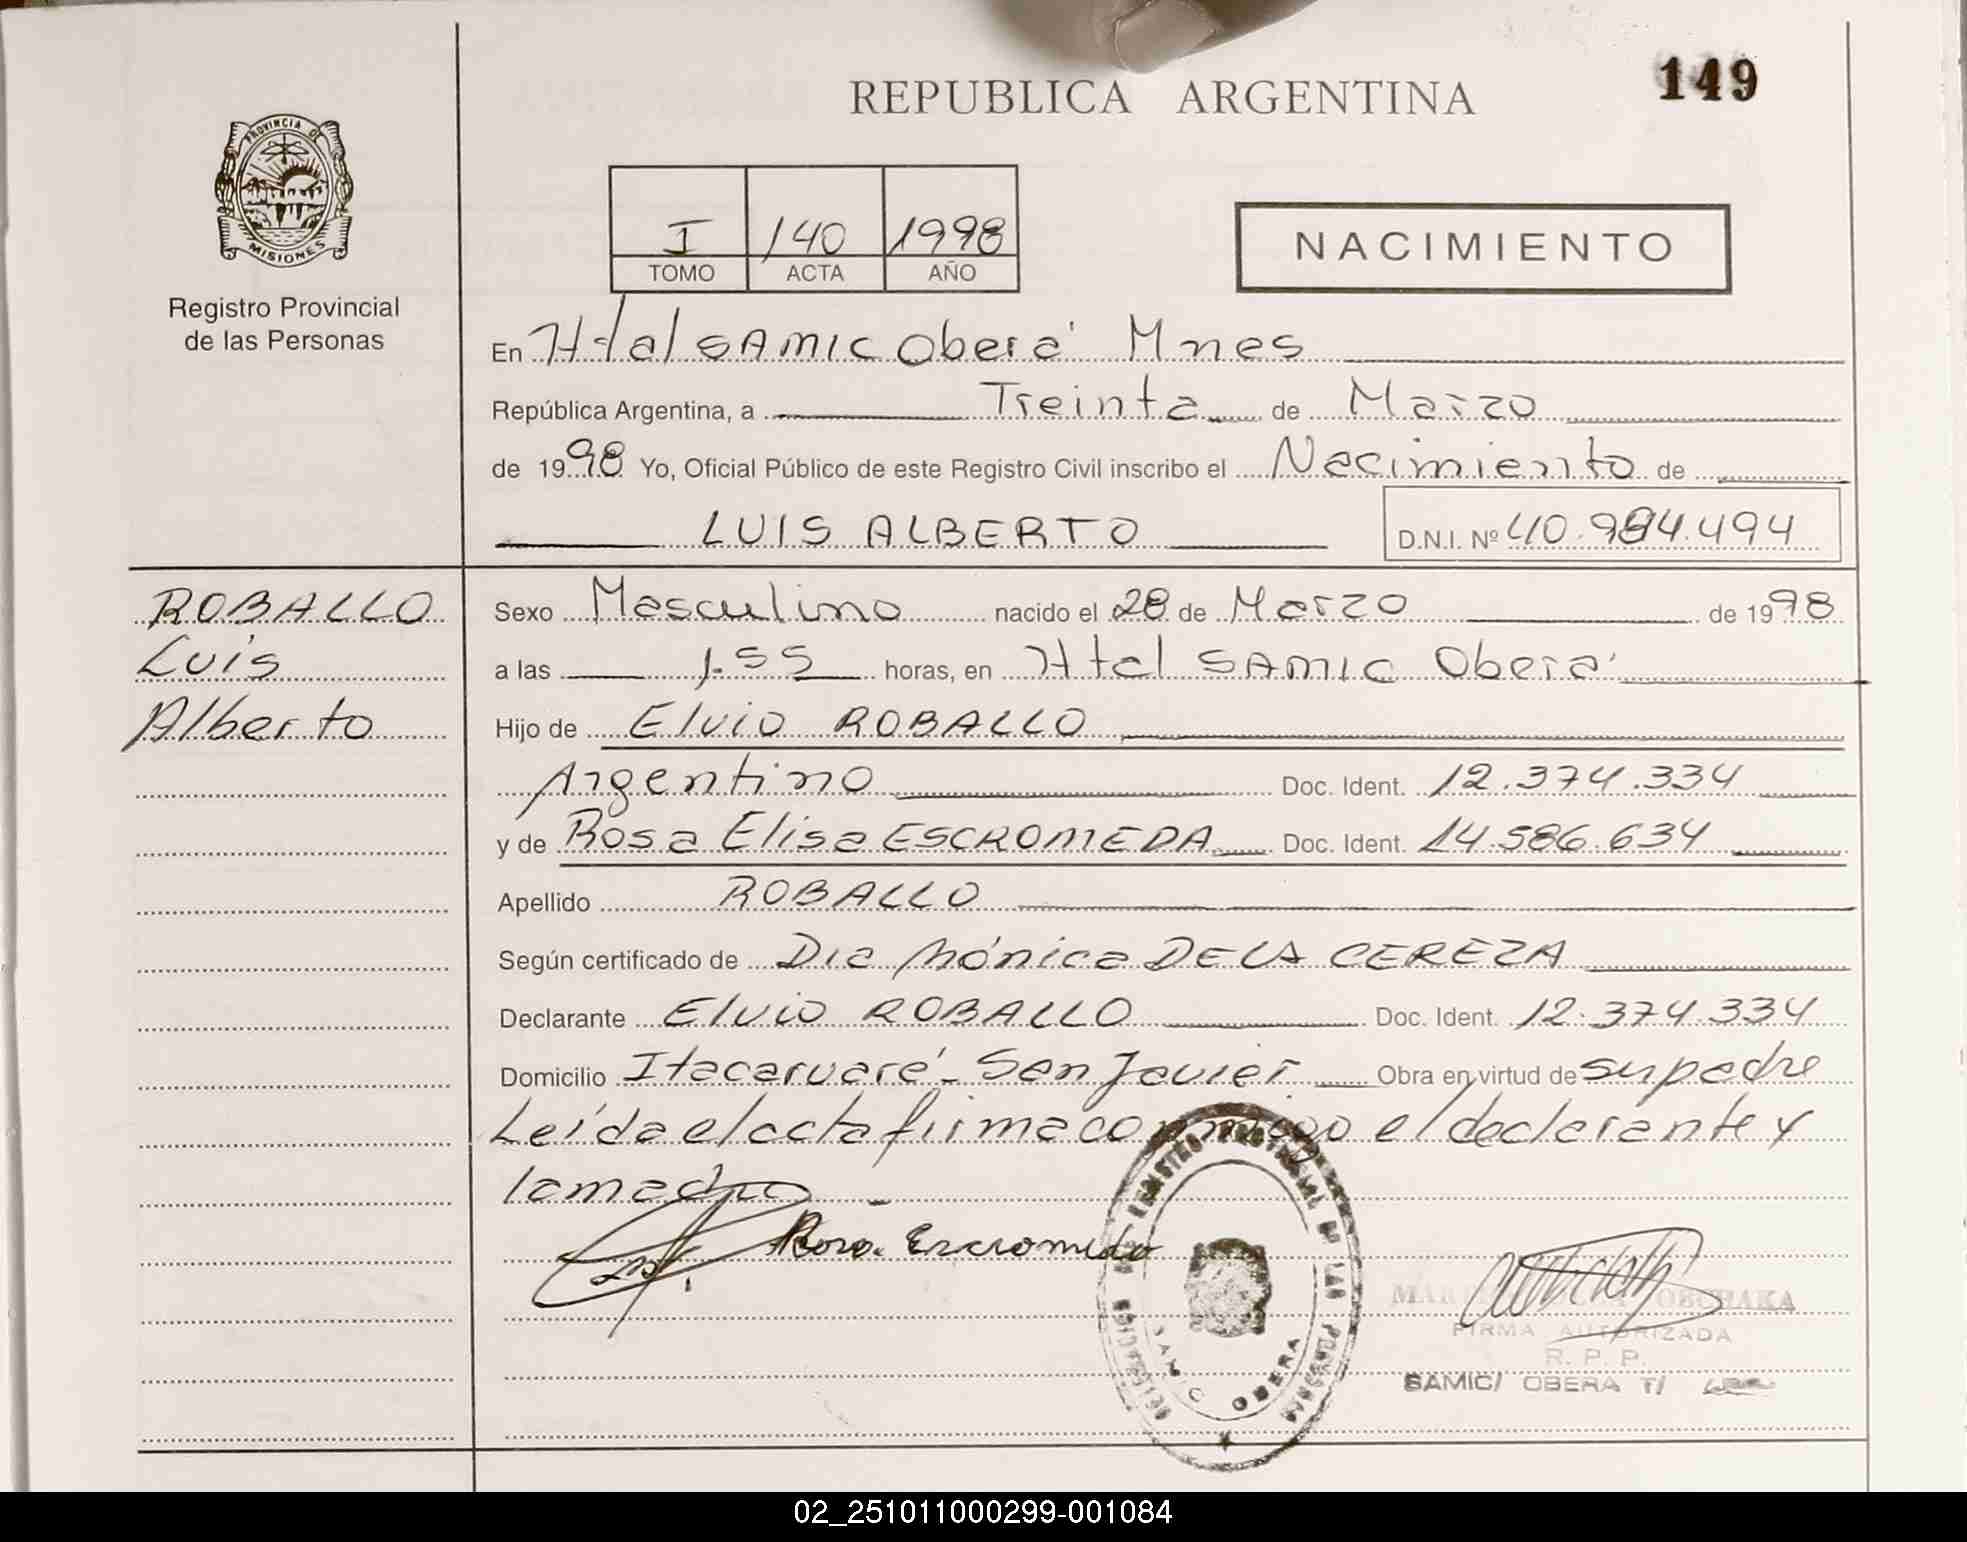 149
REPUBLICA ARGENTINA
PROVINCIA DE
MISIONES
Registro Provincial
de las Personas
I 140 1998
TOMO ACTA AÑO
NACIMIENTO
En Htal SAMIC Oberá Mnes
República Argentina, a Treinta de Marzo
de 1998 Yo, Oficial Público de este Registro Civil inscribo el Nacimiento de
LUIS ALBERTO D.N.I. Nº 40.984.494
ROBALLO
Luis
Alberto
Sexo Masculino nacido el 28 de Marzo de 1998
a las 1.55 horas, en Htal SAMIC Oberá
Hijo de Elvio ROBALLO
Argentino Doc. Ident. 12.374.334
y de Rosa Elisa ESCROMEDA Doc. Ident. 14.586.634
Apellido ROBALLO
Según certificado de Dra Mónica DE LA CEREZA
Declarante Elvio ROBALLO Doc. Ident. 12.374.334
Domicilio Itacaruaré - San Javier Obra en virtud de su padre
Leída el acta firma conmigo el declarante y
la madre
Rosa Escromeda
REGISTRO PROVINCIAL DE LAS PERSONAS
OBERA
FIRMA AUTORIZADA
R. P. P.
SAMIC/ OBERA T/
02_251011000299-001084